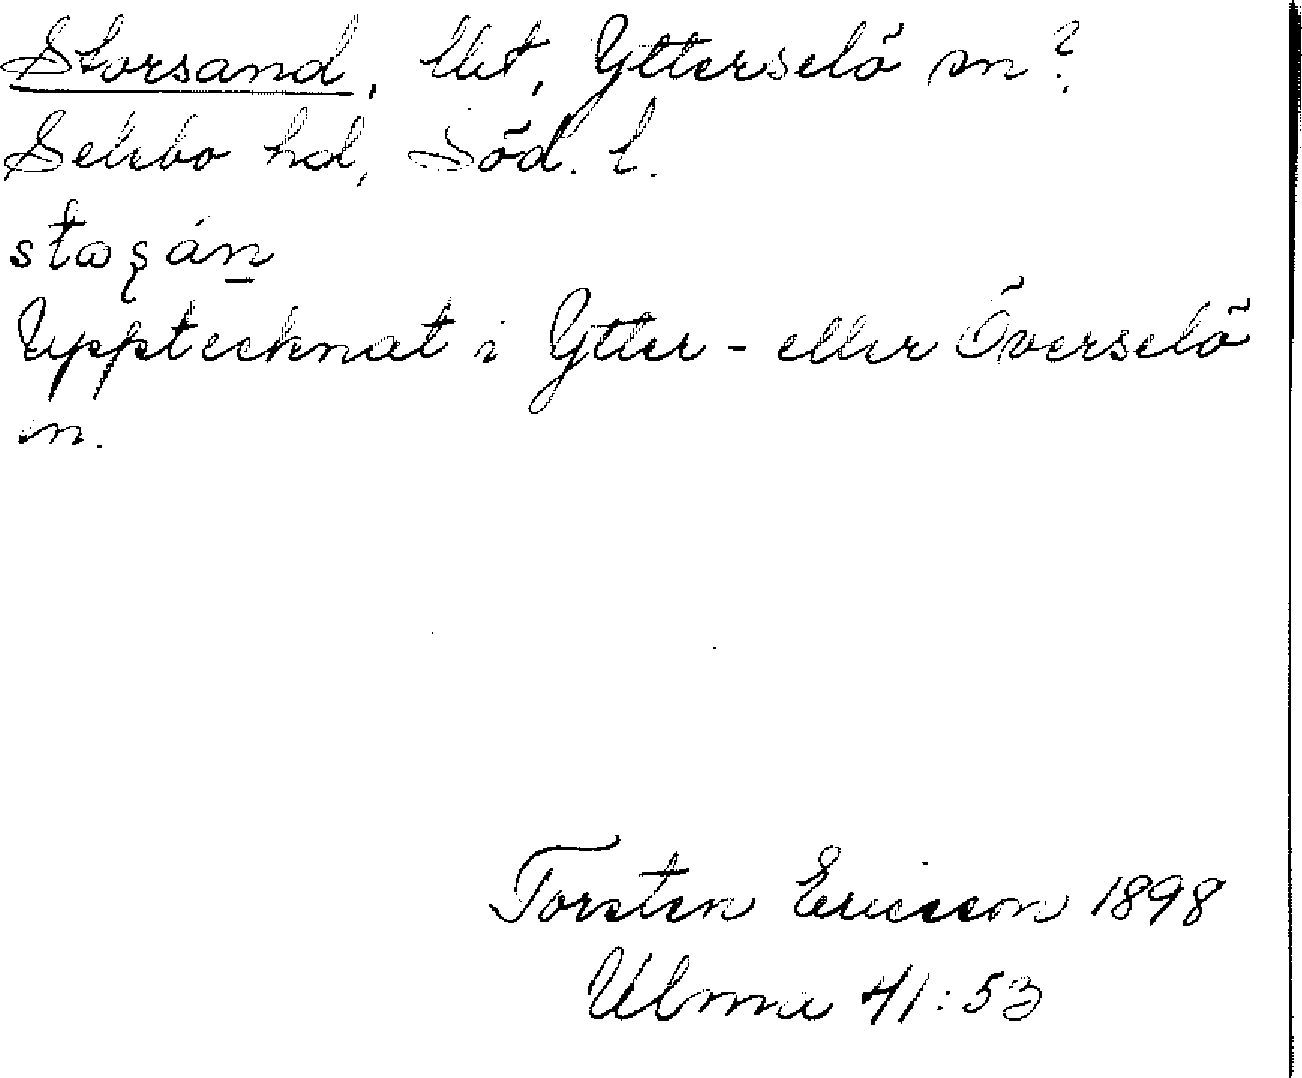 Storsand, lht, Ytterselö sn?
Selebo hd, Söd. l.
Upptecknat i Ytter- eller Överselö
sn.
Torsten Ericsson 1898
Ulma 41:53